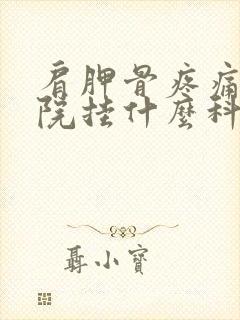 肩胛骨疼痛
院挂什麼科
聶小寶